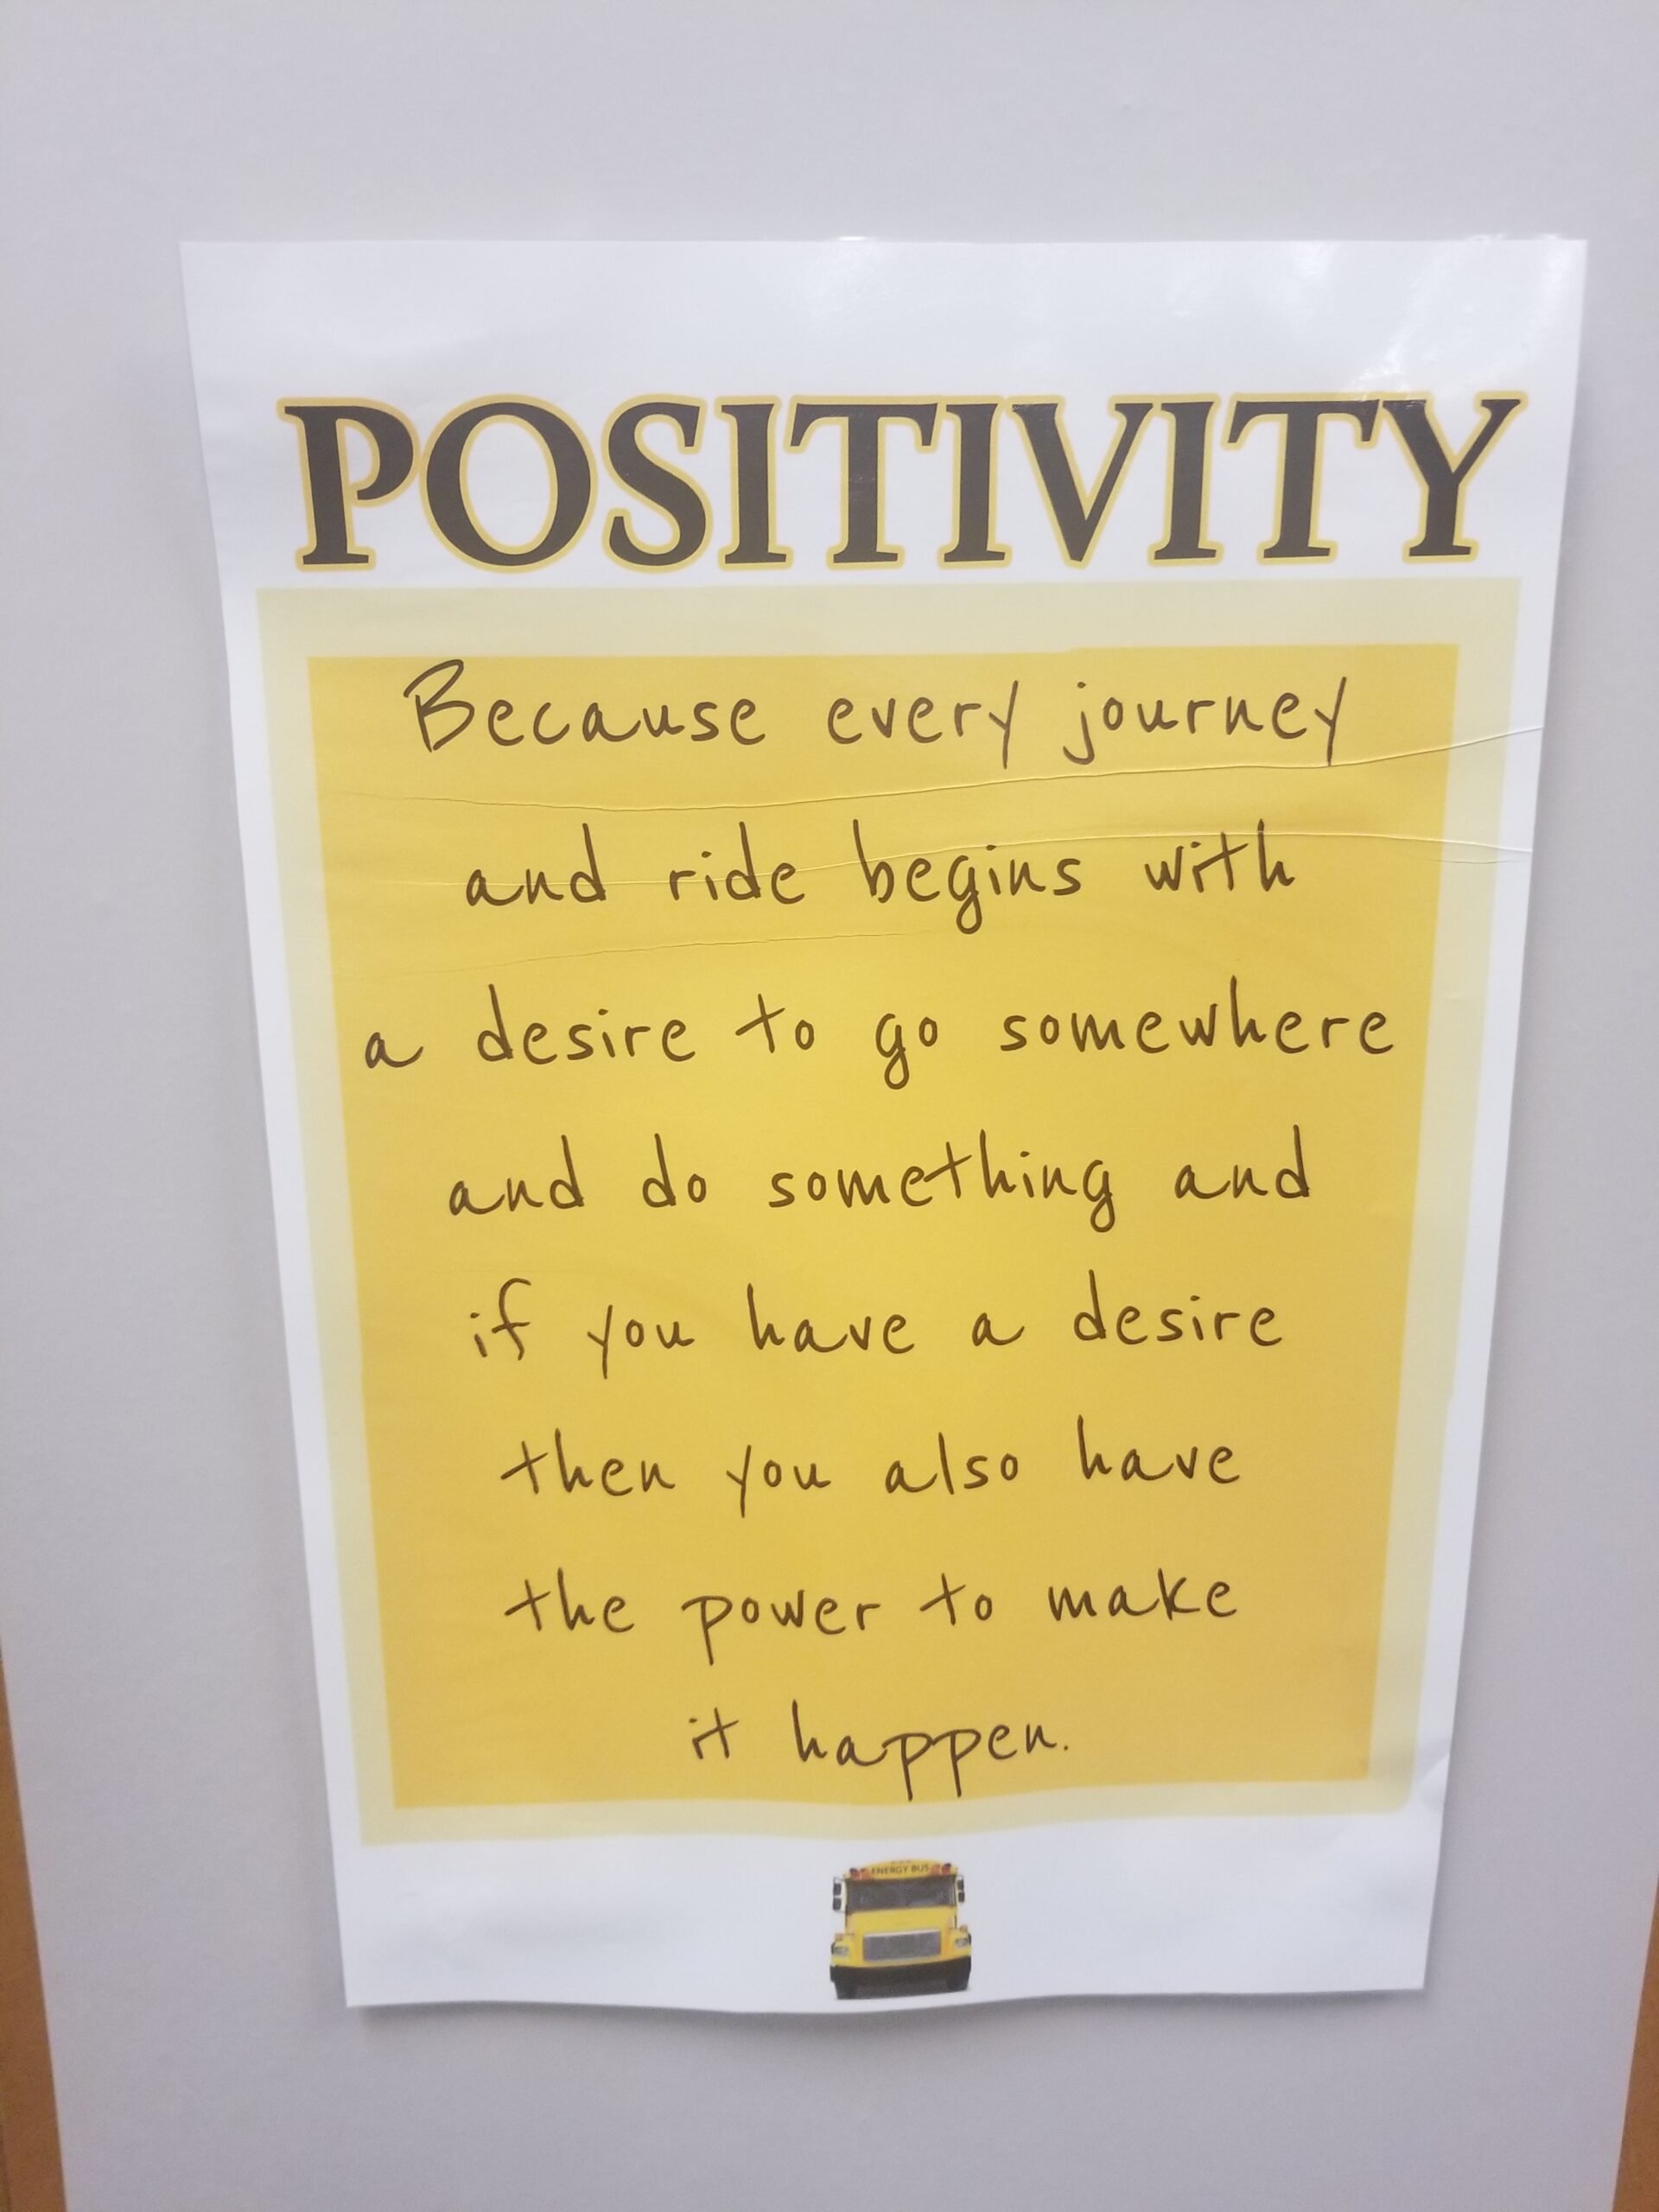 POSITIVITY
Because every journey
and ride begins with
a desire to go somewhere
and do something and
if you have a desire
then you also have
the power to make
it happen.
ENERGY BUS